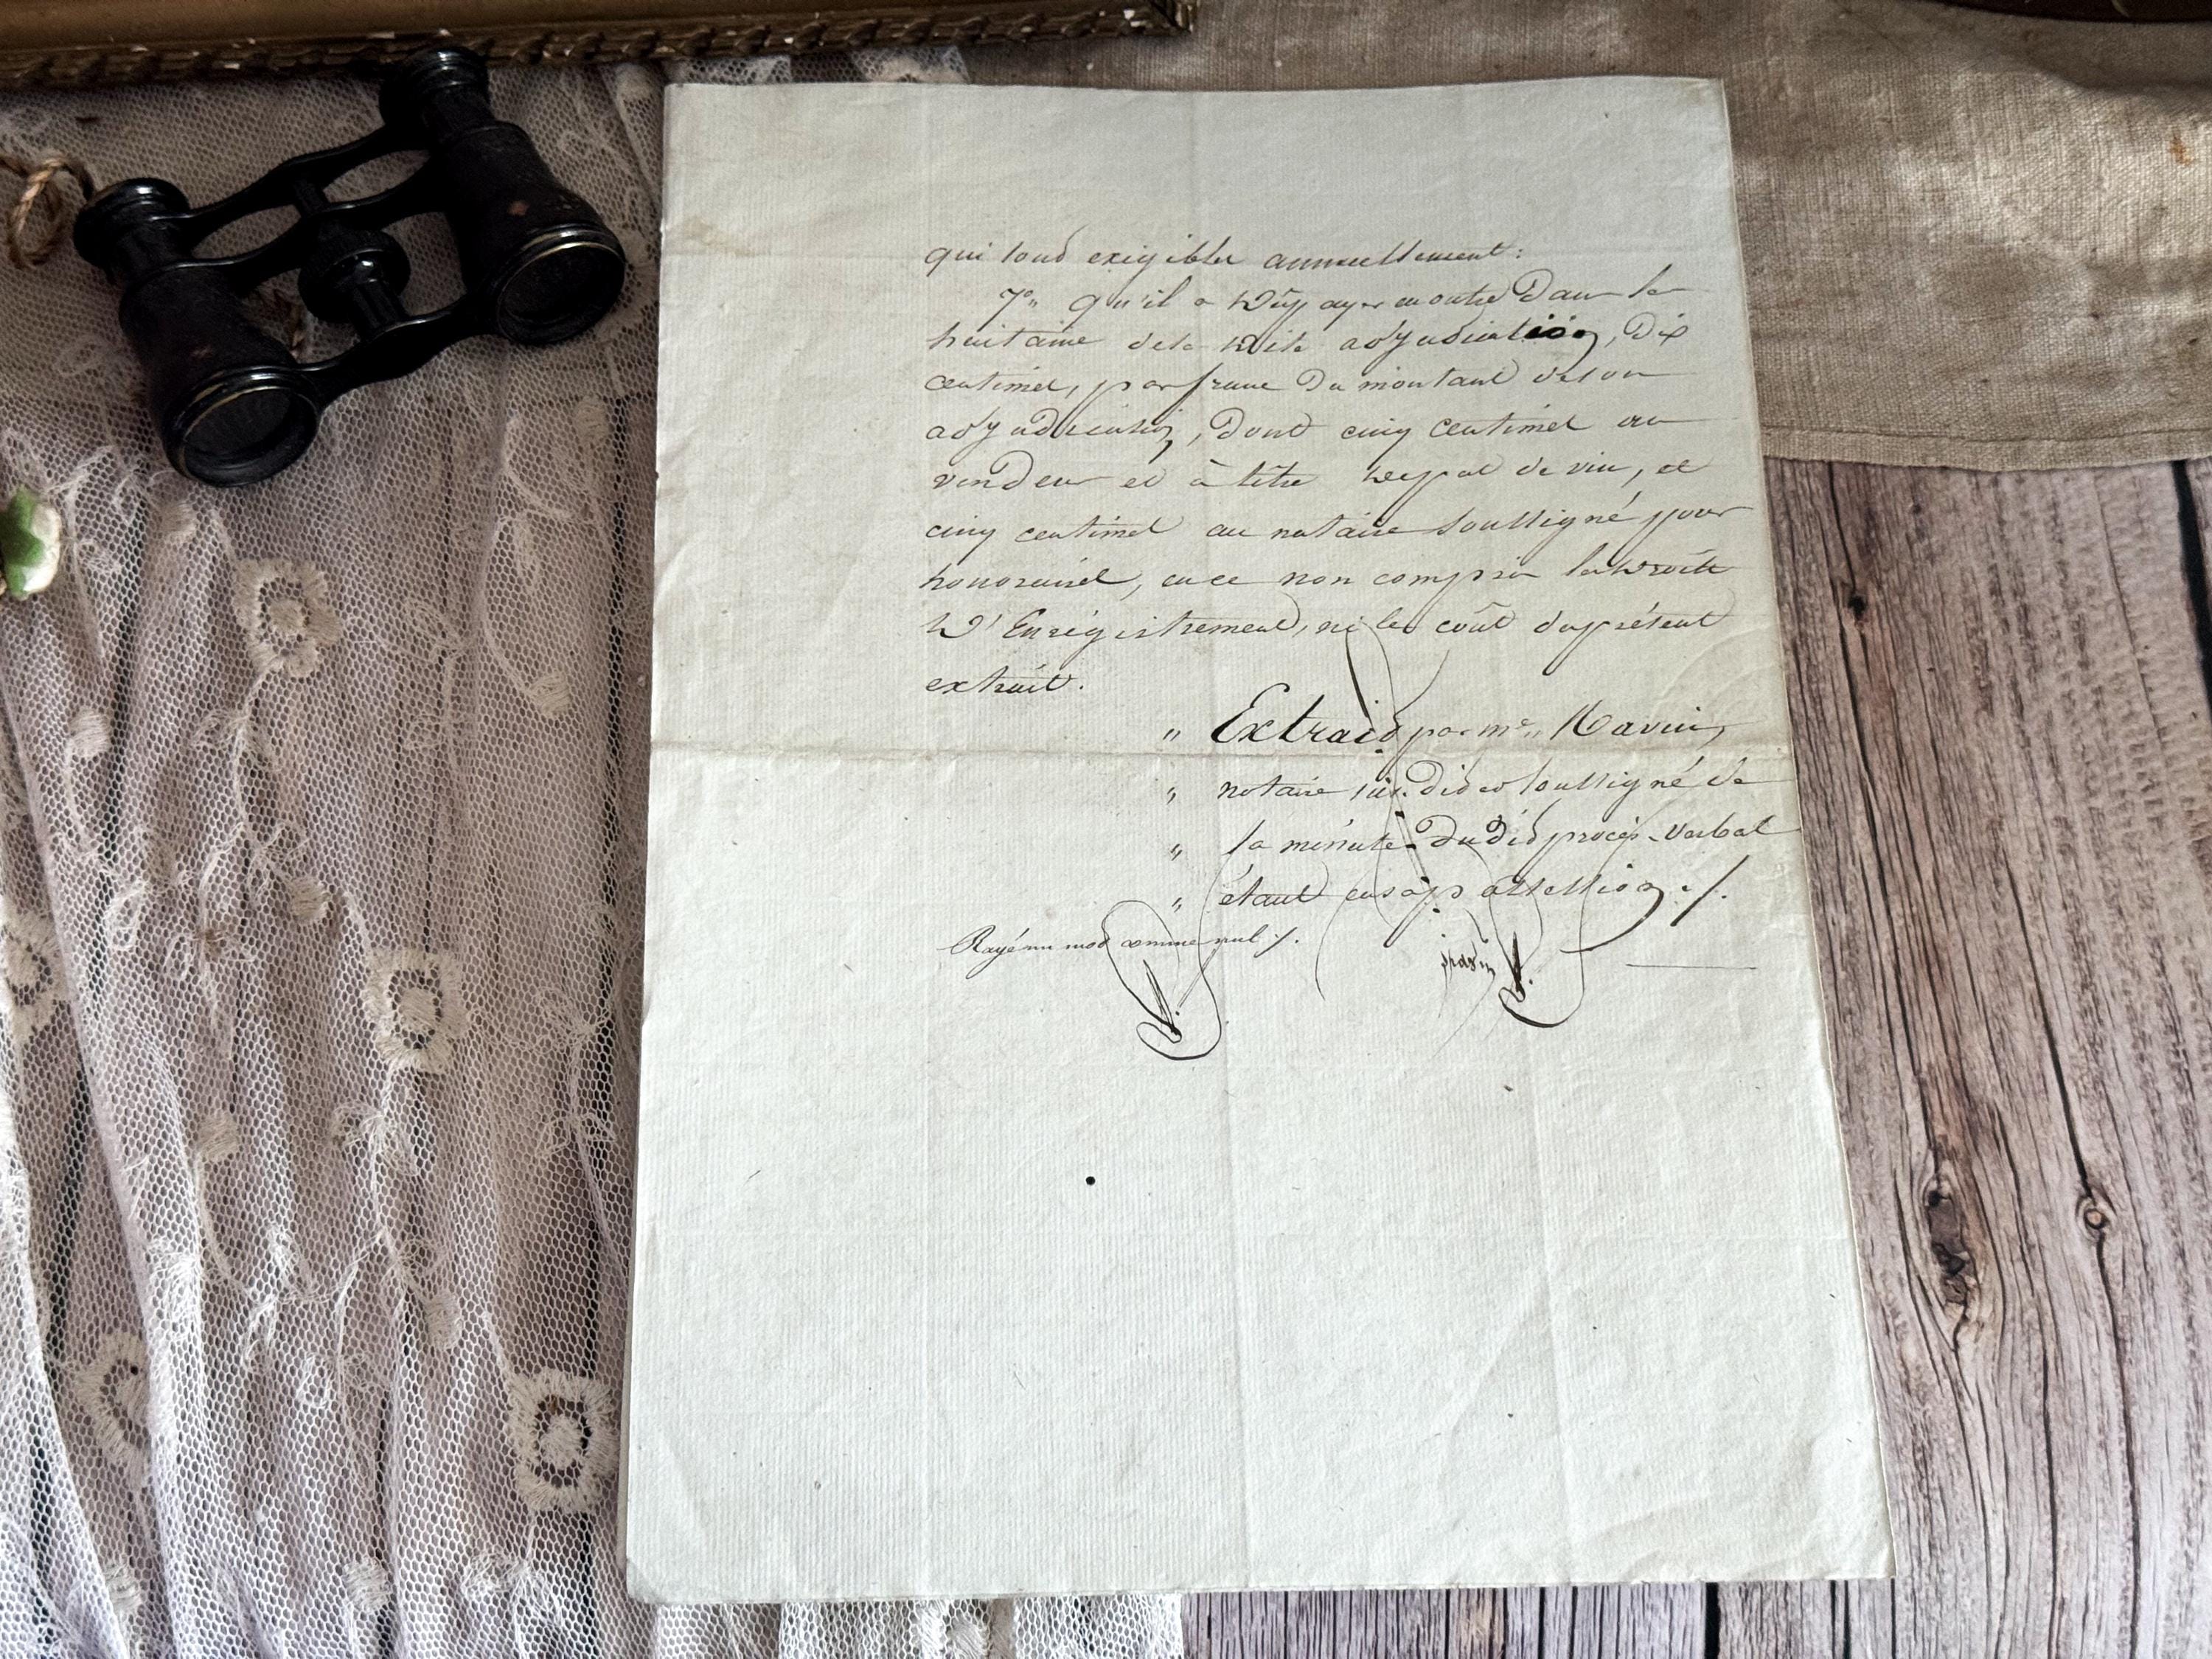 qui sont exigibles annuellement :
7°,, qu'il a dû payer en outre dans la
huitaine de la dite adjudication, dix
centimes, par franc du montant de son
adjudication, dont cinq centimes au
vendeur et à titre de pot de vin, et
cinq centimes au notaire soussigné pour
honoraires, en ce non compris les droits
d'Enregistrement, ni le coût du présent
extrait.
" Extrait par me,,
" notaire sus. dit et soussigné de
" la minute dudit procès-verbal
" étant en sa possession ./.
Rayé un mot comme nul ./.